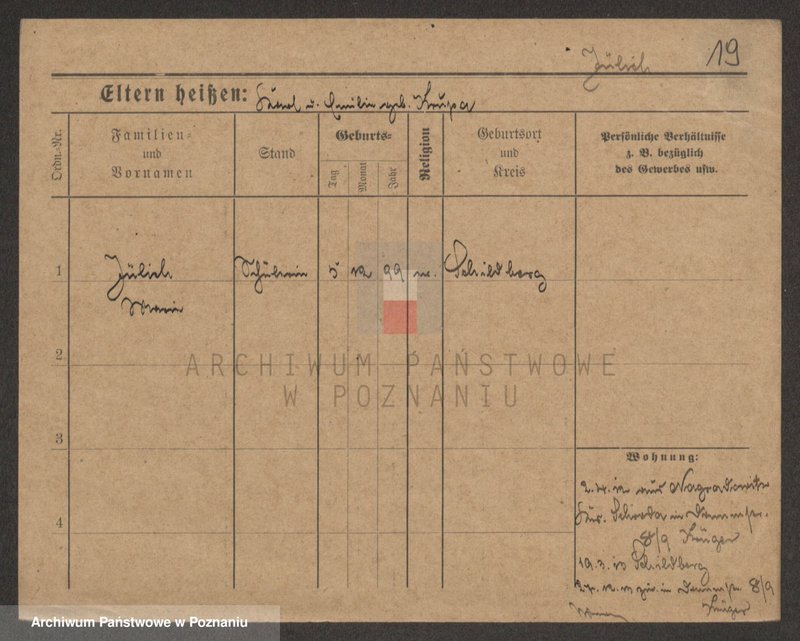 Jülich 19
Eltern heißen: Karl u. Emilie geb. Krupa
Ordn.-Nr.
Familien- und Vornamen
Stand
Geburts-
Tag
Monat
Jahr
Religion
Geburtsort und Kreis
Persönliche Verhältnisse
z. B. bezüglich
des Gewerbes usw.
1 Jülich Schülerin 5 12 99 Schildberg
Marie
2
3
4
ARCHIWUM PAŃSTWOWE
W POZNANIU
Wohnung:
aus Nagradowitz
Schroda in
8/9 Krüger
19.3.13 Schildberg
8/9
Krüger
Archiwum Państwowe w Poznaniu